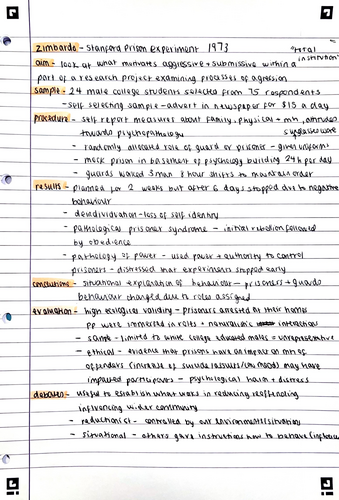 zimbardo - Stanford Prison Experiment 1973
"total institution"
aim - look at what motivates aggressive + submissive within a
part of a research project examining processes of agression
sample - 24 male college students selected from 75 respondents
- self selecting sample - advert in newspaper for $15 a day
procedure - self report measures about family, physical + mh, attitudes
towards psychopathology
sunglasses were
- randomly allocated role of guard or prisoner - given uniforms
- mock prison in basement of psychology building 24h per day
- guards worked 3 man 8 hour shifts to maintain order
results - planned for 2 weeks but after 6 days stopped due to negative
behaviour
- deindividuation - loss of self identity
- pathological prisoner syndrome - initial rebellion followed
by obedience
- pathology of power - used power + authority to control
prisoners - distressed that experiments stopped early
conclusions - situational explanation of behaviour - prisoners + guards
behaviour changed due to roles assigned
evaluation - high ecological validity - prisoners arrested at their homes
pp were immersed in roles + naturalistic interactions
- sample - limited to white college educated males = unrepresentative
- ethical - evidence that prisons have an impact on mh of
offenders (increase of suicide may have
impacted participants - psychological harm + distress
debates - useful to establish what works in reducing reoffending
influencing wider community
- reductionist - controlled by our environments/situation
- situational - others gave instructions how to behave